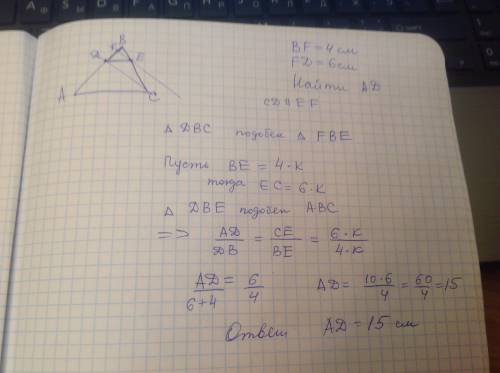 B
D F E
A C
BF = 4 см
FD = 6 см
Найти AD
CD || EF
Δ DBC подобен Δ FBE
Пусть BE = 4·K
тогда EC = 6·K
Δ DBE подобен ABC
=> AD/DB = CE/BE = 6·K/4·K
AD/6+4 = 6/4 AD = 10·6/4 = 60/4 = 15
Ответ AD = 15 см